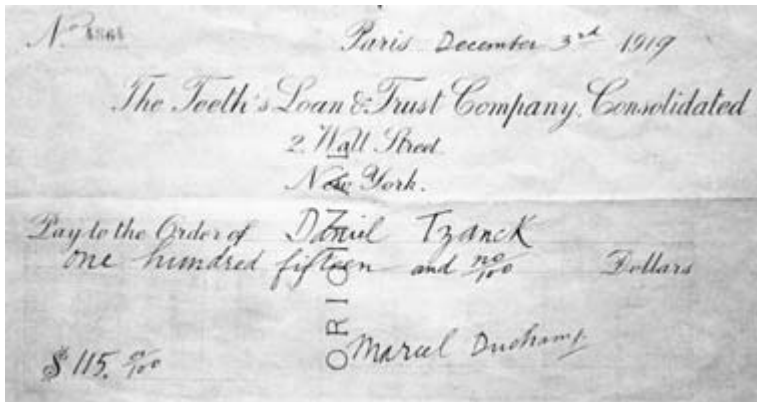 No 4864 Paris December 3rd 1919
The Teeth's Loan & Trust Company, Consolidated
2 Wall Street.
New York.
Pay to the Order of Daniel Tzanck
one hundred fifteen and no/100 Dollars
$ 115. 00/100 Marcel Duchamp
ORIGINAL